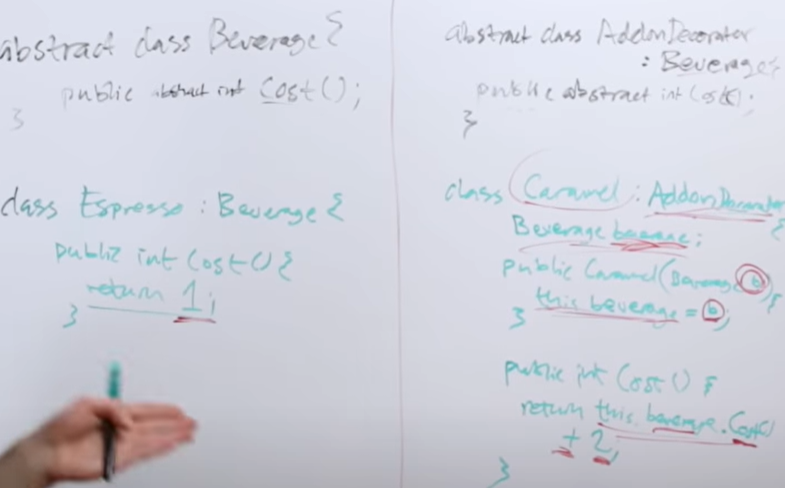 abstract class Beverage {
public abstract int Cost();
}
class Espresso : Beverage {
public int Cost() {
return 1;
}
abstract class AddonDecorator
: Beverage {
public abstract int Cost();
}
class Caramel : AddonDecorator
{
Beverage beverage;
public Caramel(Beverage b) {
this.beverage = b;
}
public int Cost() {
return this.beverage.Cost()
+ 2;
}